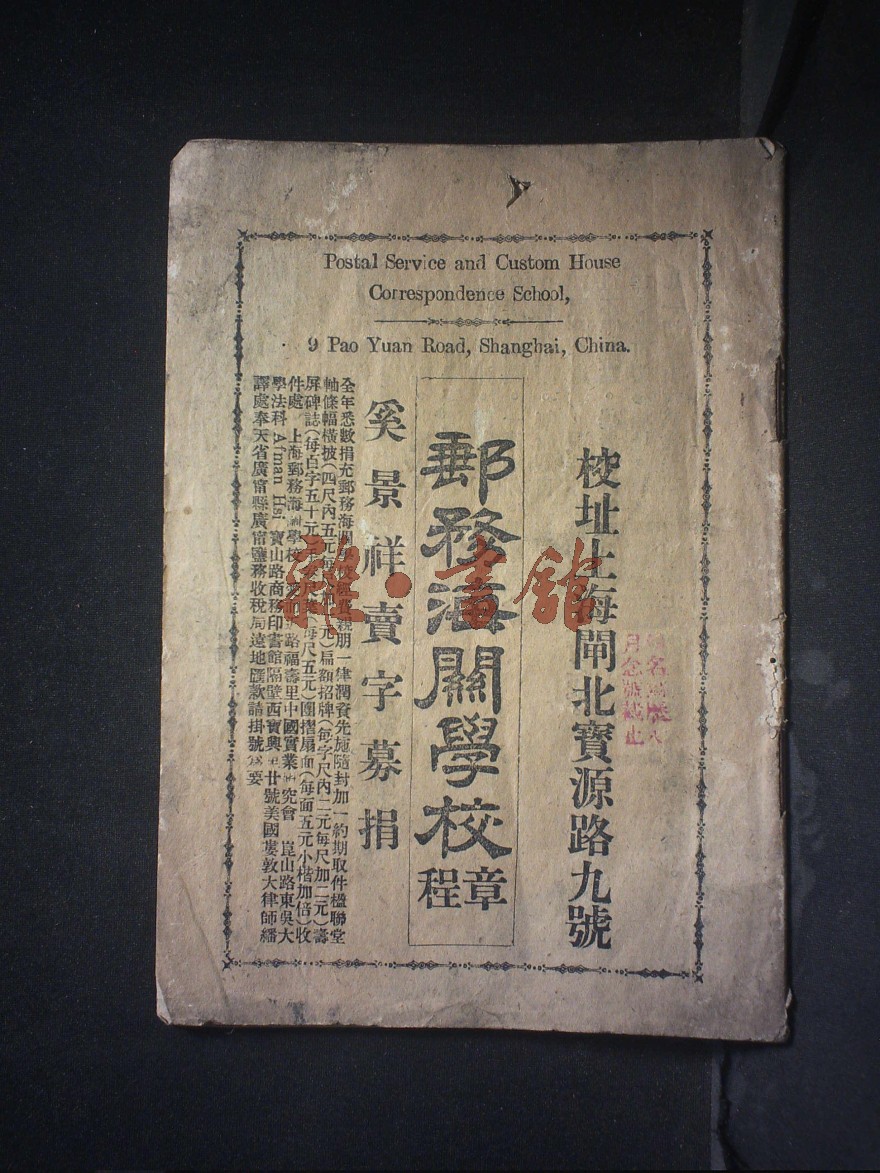 Postal Service and Custom House
Correspondence School,
9 Pao Yuan Road, Shanghai, China.
校址上海閘北寶源路九號
郵務海關學校
章程
奚景祥賣字募捐
全年悉數捐充郵務海關學校經費親朋一律潤資先施隨封加一約期取件楹聯堂
軸條幅橫披(四尺內五元每尺加一元)扁額招牌(每字尺內二元每尺加二元)壽
屏碑誌(每百字五十元)(每尺五元)團摺扇面(每面五元小楷加倍)收
件處 上海郵務海關學校 路福壽里中國實業研究會 崑山路東吳大
學法科 Afman Hsi 寶山路商務印書館隔壁西寶興里廿號美國婁敦大律師繙
譯處奉天省廣甯縣廣甯鹽務收稅局遠地匯款請掛號爲要
報名
月念號截止
雜·書館